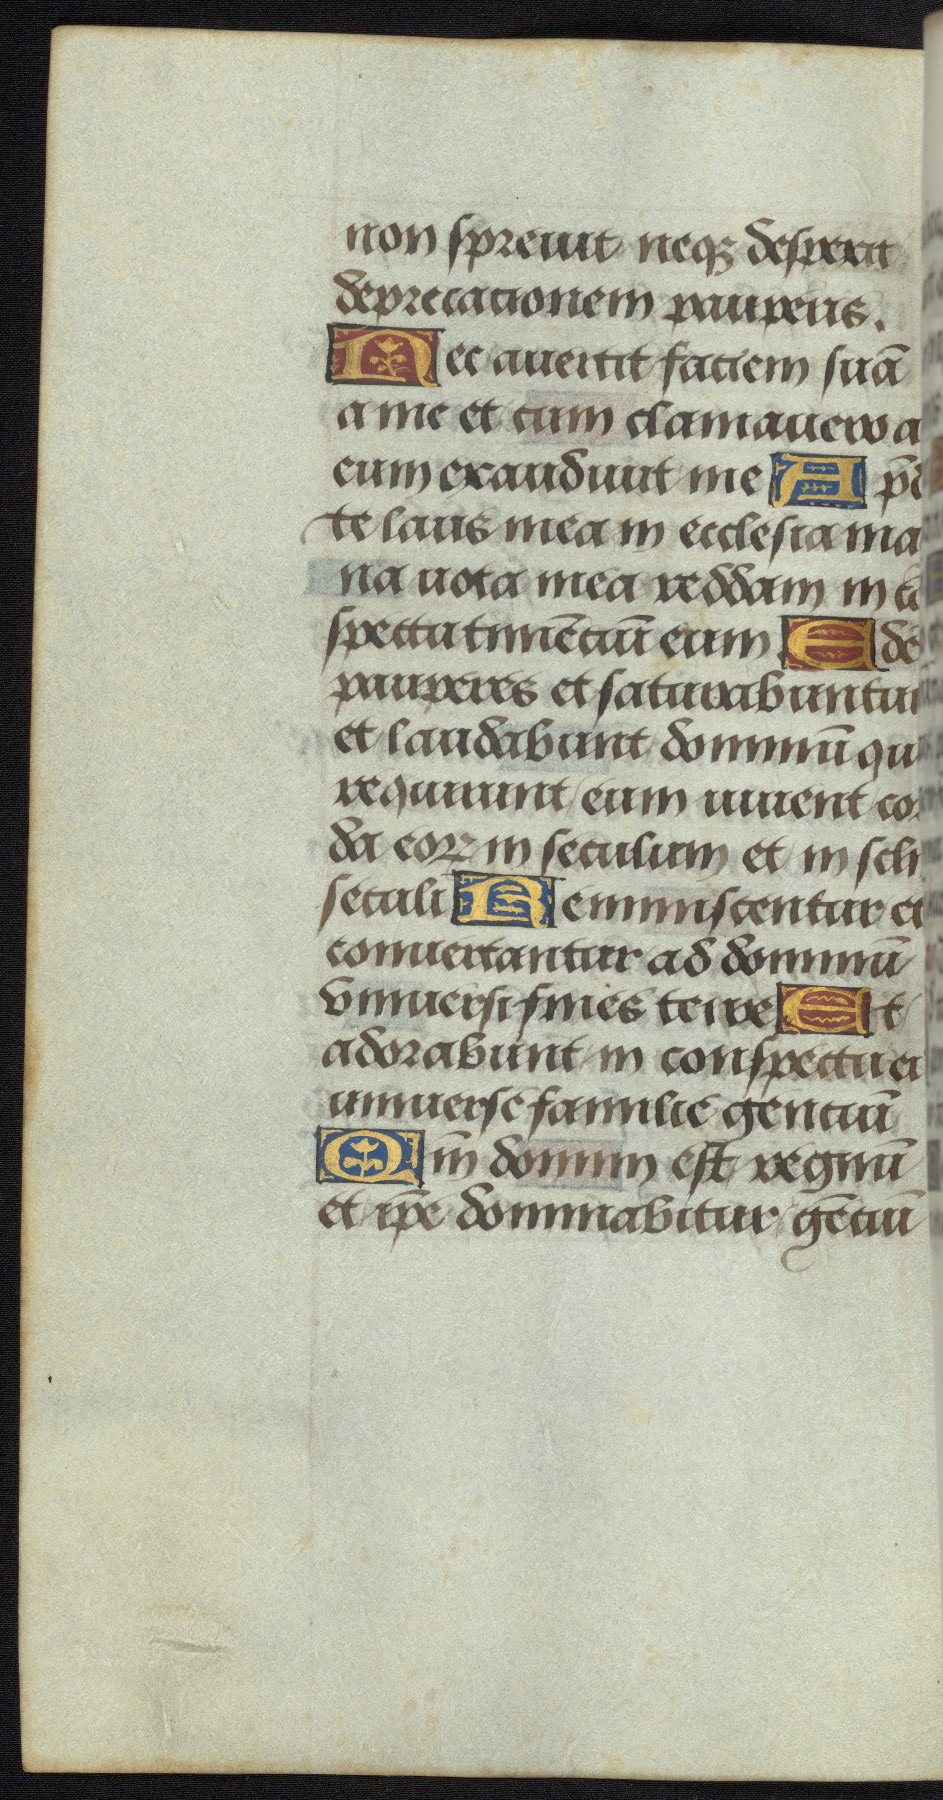 non spreuit neqꝫ despexit
deprecationem pauperis.
Nec auertit faciem suā
a me et cum clamauero a
eum exaudiuit me A
te laus mea in ecclesia ma
na uota mea reddam in
spectu timēciū eum Ede
pauperes et saturabuntur
et laudabunt dominū qui
requirunt eum uiuent cor
da eoꝝ in seculum et in
seculi Reminiscentur et
conuertantur ad dominū
vniuersi fines terre Et
adorabunt in conspectu ei
uniuerse familie genciū
Qm̄ domini est regnū
et ip̄e dominabitur gēciū